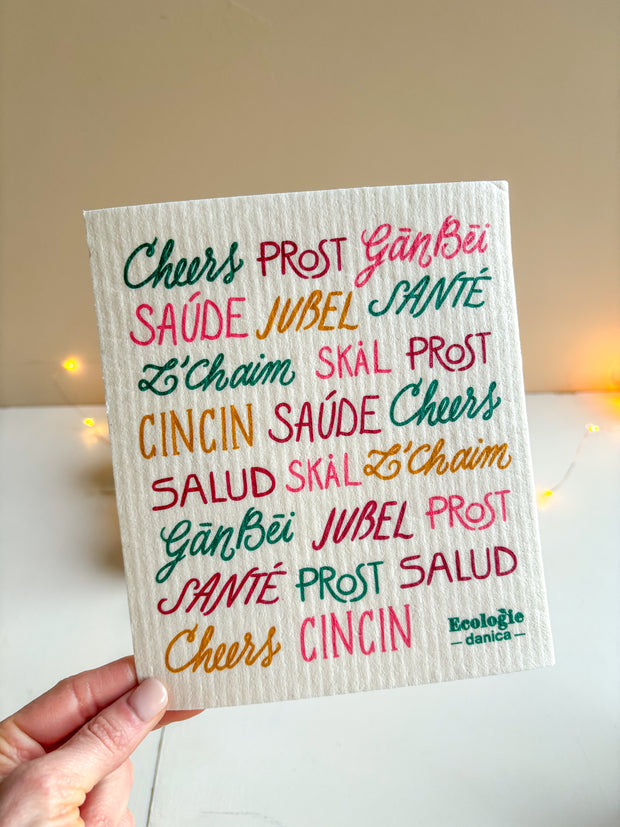 Cheers PROST GānBēi
SAÚDE JUBEL SANTÉ
L'Chaim SKÅL PROST
CINCIN SAÚDE Cheers
SALUD SKÅL L'Chaim
GānBēi JUBEL PROST
SANTÉ PROST SALUD
Cheers CINCIN
Ecologie
— danica —